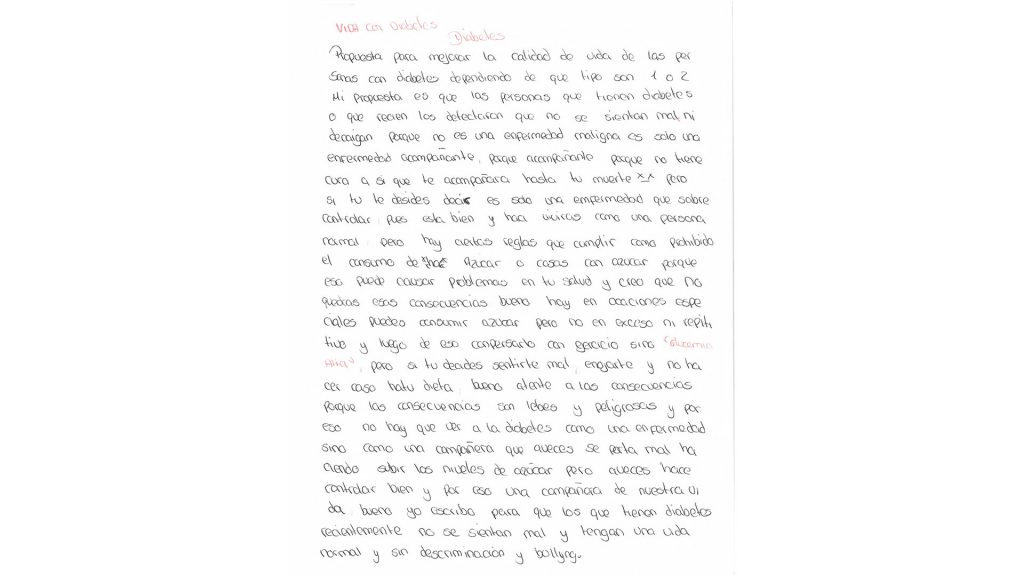 VIDA con Diabetes
Diabetes
Propuesta para mejorar la calidad de vida de las per
sonas con diabetes dependiendo de que tipo son 1 o 2
Mi propuesta es que las personas que tienen diabetes
o que recien los detectaron que no se sientan mal ni
decaigan porque no es una enfermedad maligna es solo una
enfermedad acompañante, porque acompañante porque no tiene
cura a si que te acompañara hasta tu muerte x_x pero
si tu le desides decir es solo una empermedad que sobre
controlar pues esta bien y haci viviras como una persona
normal, pero hay ciertas reglas que cumplir como prohibido
el consumo de Azucar o cosas con azucar porque
eso puede causar problemas en tu salud y creo que no
quedras esas consecuencias bueno hay en ocaciones espe
ciales puedes consumir azucar pero no en exceso ni repiti
tivo y luego de eso conpensarlo con ejercicio sino "Glucemia
Alta", pero si tu decides sentirte mal, enojarte y no ha
cer caso hatu dieta, bueno atente a las consecuencias
porque las consecuencias son lebes y peligrosas y por
eso no hay que ver a la diabetes como una enfermedad
sino como una compañera que aveces se porta mal ha
ciendo subir los niveles de azúcar pero aveces hace
controlar bien y por eso una compañara de nuestra vi
da, bueno yo escribo para que los que tienen diabetes
recientemente no se sientan mal y tengan una vida
normal y sin descriminación y bullyng.